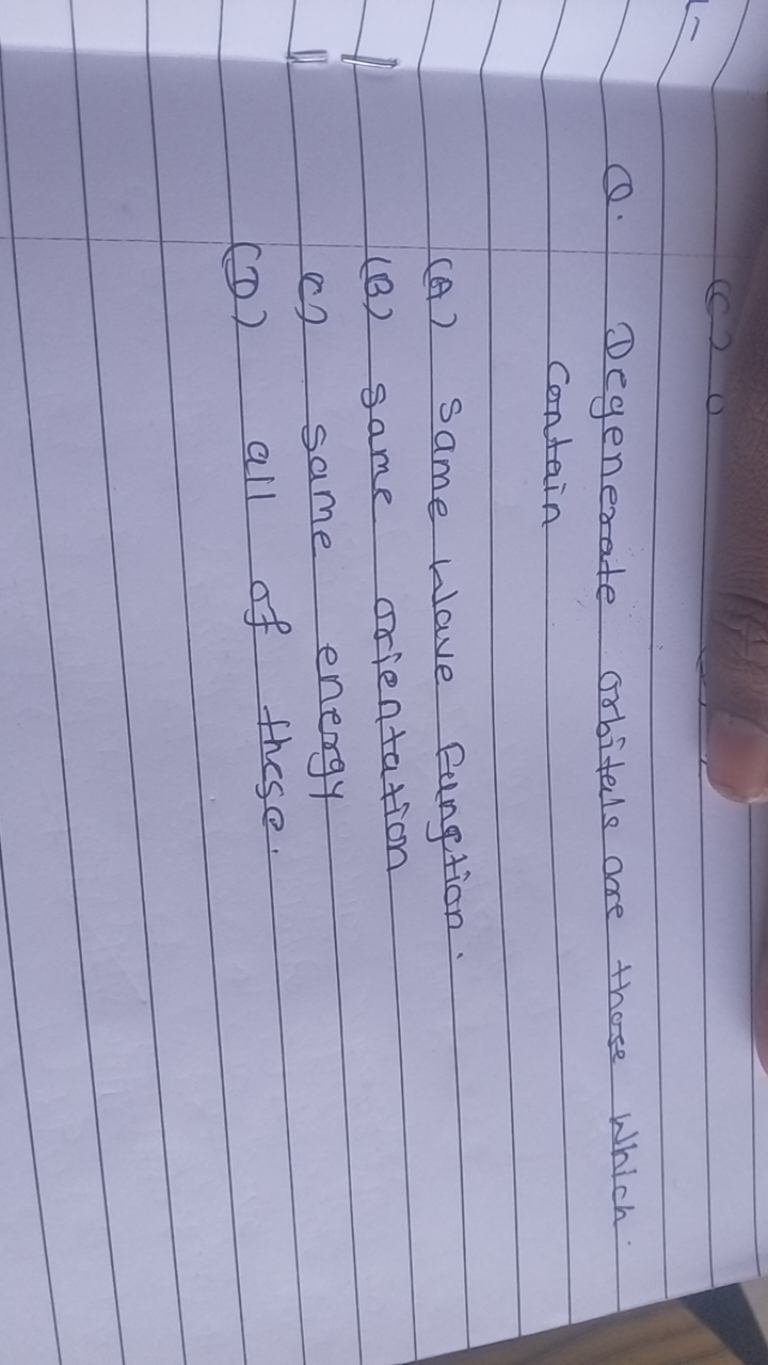 Q. Degenerate orbitals are those which.
contain
(A) same wave function.
(B) same orientation
C) same energy
(D) all of these.